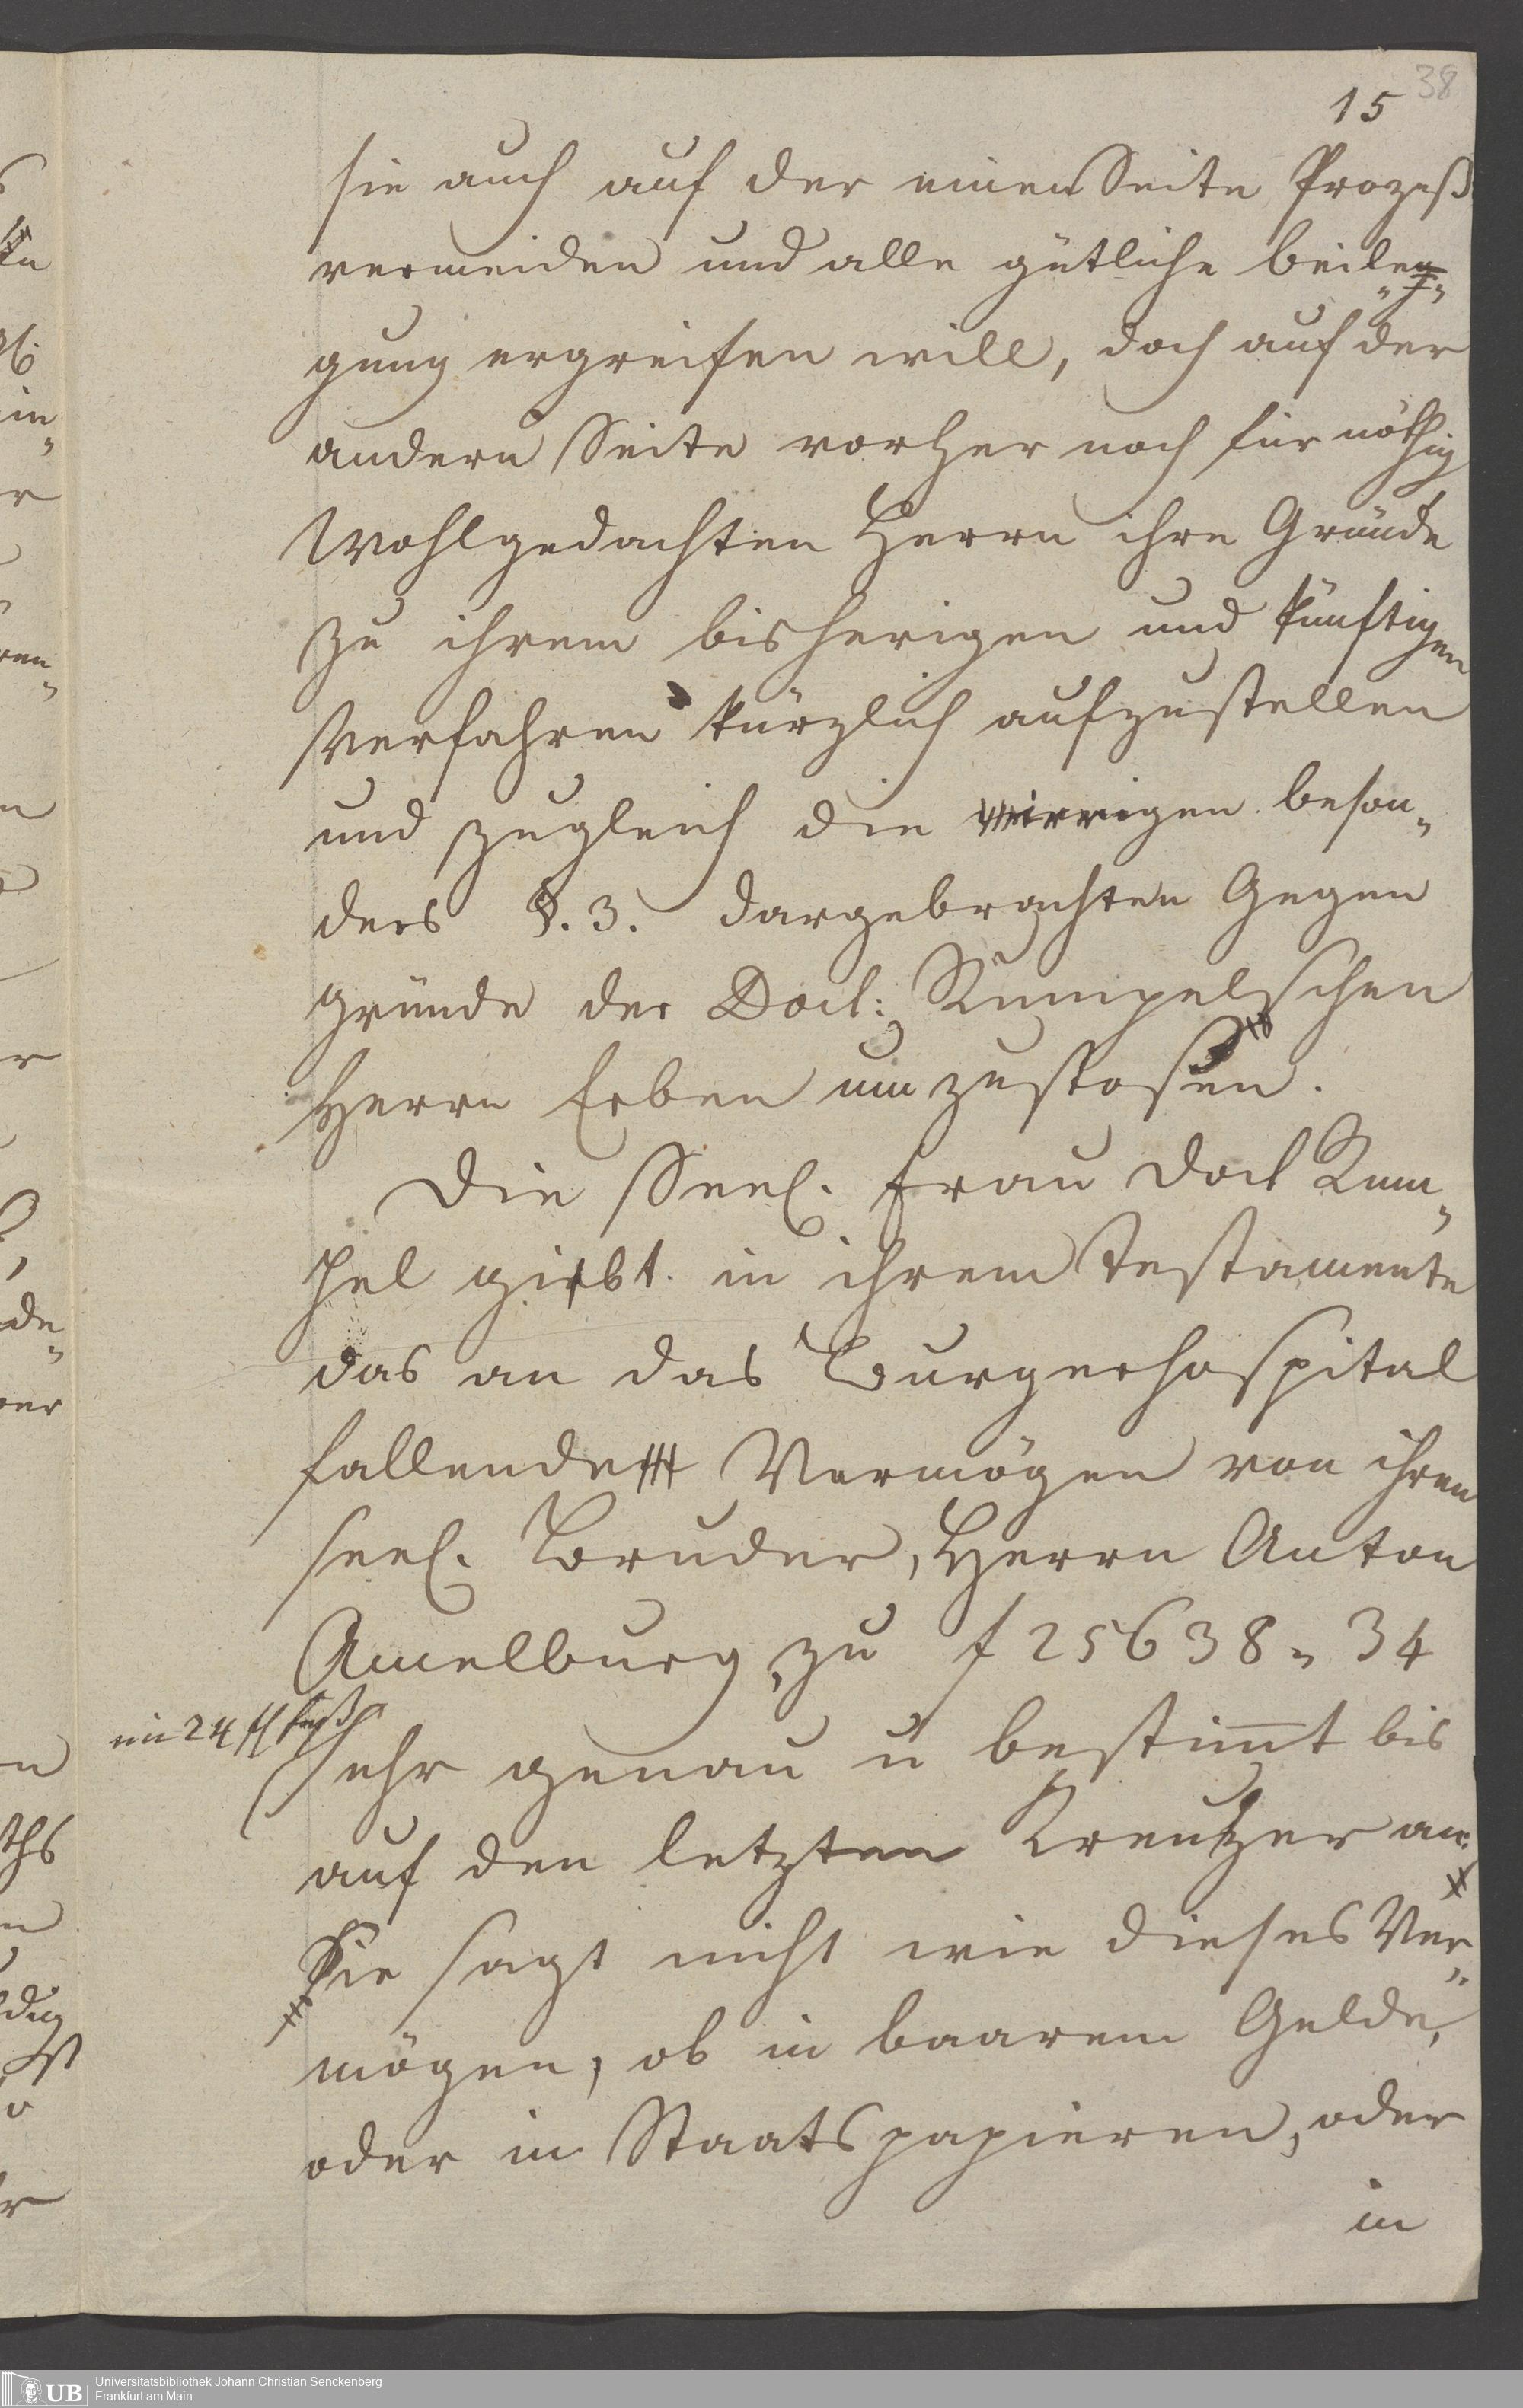 38
15
sie auch auf der einen Seite Prozeß
vermeiden und alle gütliche beile„
gung ergreifen will, doch auf der
andern Seite vorher noch für nöthig
Wohlgedachten Herrn ihre Gründe
zu ihrem bisherigen und künftigen
Verfahren kürzlich aufzustellen
und zugleich die irrigen beson„
ders §. 3. dargebrachten Gegen
gründe der Doct: Rumpelschen
Herrn Erben umzustosen.
Die Seel. Frau Doct Rum„
pel giebt in ihrem Testamente
das an das Burgerhospital
fallende Vermögen von ihren
seel. Bruder, Herrn Anton
Amelburg, zu f 25638 „ 34
im 24 fl fuß
sehr genau u bestim̅t bis
auf den letzten Kreutzer an.
Sie sagt nicht wie dieses Ver„
mögen, ob in baarem Gelde,
oder in Staatspapieren, oder
in
UB
Universitätsbibliothek Johann Christian Senckenberg
Frankfurt am Main